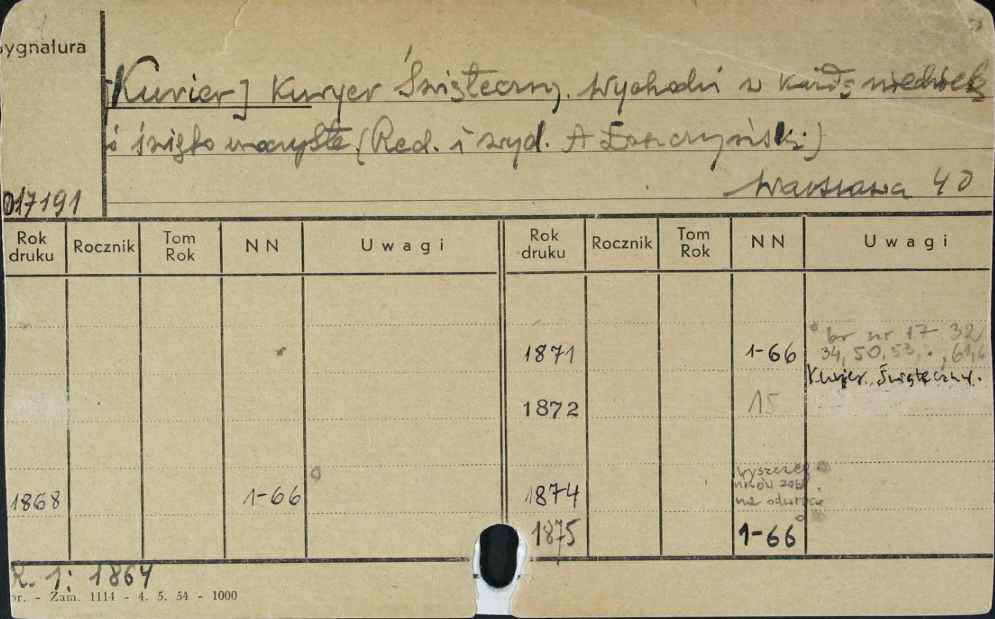 Sygnatura
Kurier] Kuryer Świąteczny. Wychodzi w każdą niedzielę
i święto uroczyste (Red. i wyd. A
017191
Warszawa 40
Rok druku Rocznik Tom Rok NN Uwagi Rok druku Rocznik Tom Rok NN Uwagi
br nr 17 32
1871 1-66 34, 50, 53,
Kurjer Świąteczny.
1872 15
wyszczeg
nrów zob.
1868 1-66 1874 na odwrocie
1875 1-66
R. 1: 1864
Zam. 1114 - 4. 5. 54 - 1000